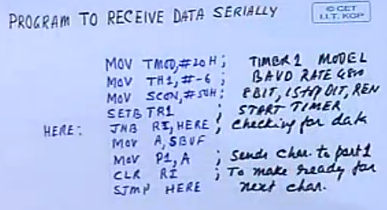 PROGRAM TO RECEIVE DATA SERIALLY
© CET
I.I.T. KGP
MOV TMOD,#20H; TIMER1 MODE2
MOV TH1,#-6 ; BAUD RATE 4800
MOV SCON,#50H; 8BIT, 1STOP BIT, REN
SETB TR1 ; START TIMER
HERE: JNB RI,HERE ; Checking for data
MOV A,SBUF
MOV P1,A ; Sends char. to port1
CLR RI ; To make ready for
SJMP HERE next char.